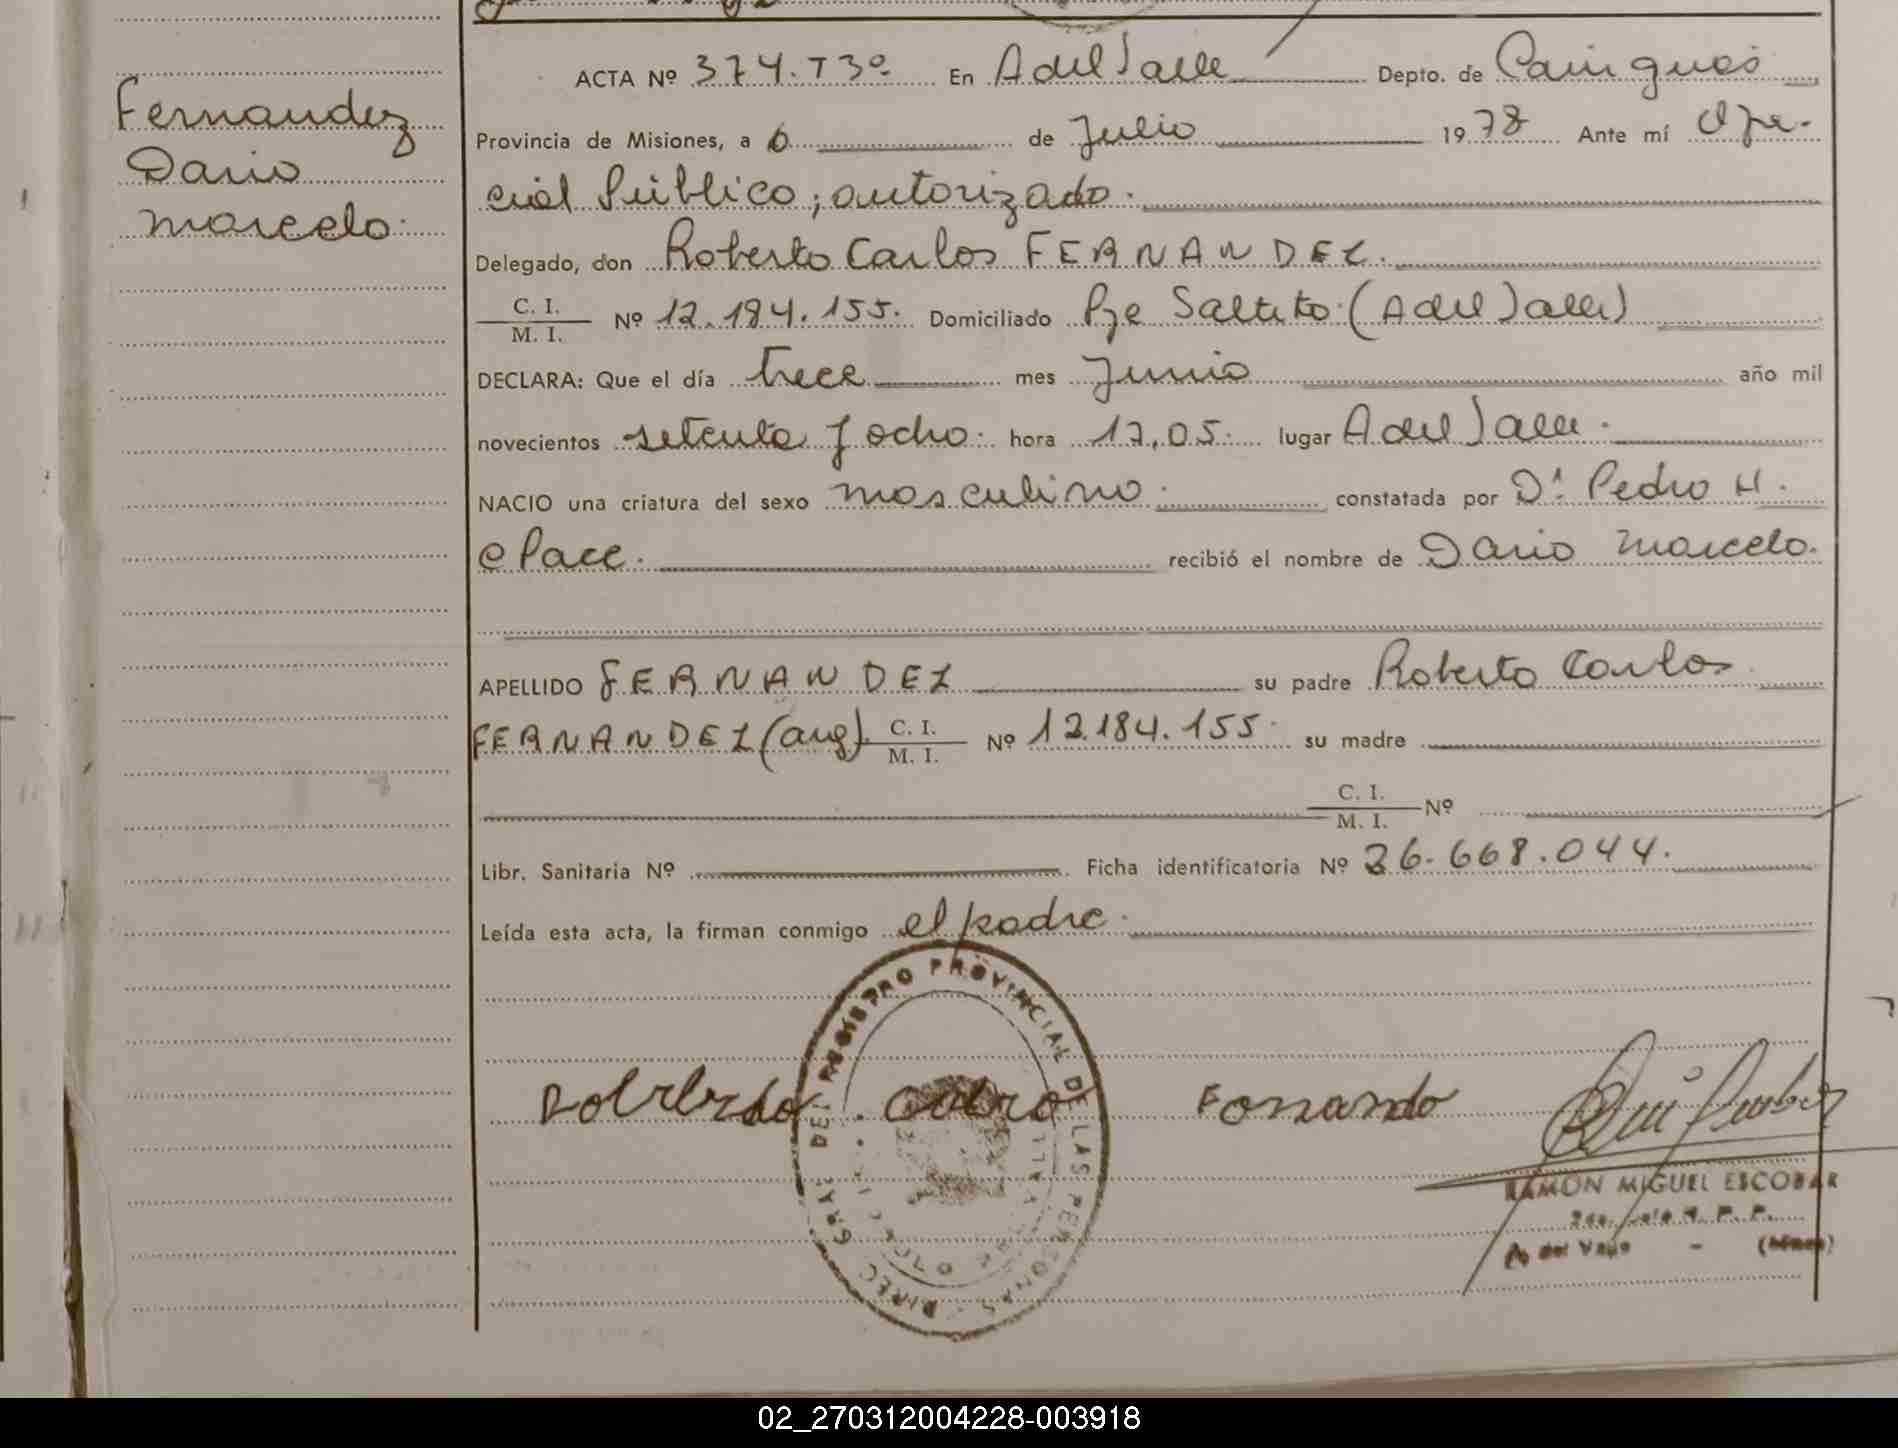 Fernandez
Dario
Marcelo.
ACTA Nº 374.T3º En A del Valle Depto. de Cainguas
Provincia de Misiones, a 6 de Julio 1978 Ante mí Ofi-
cial Público; autorizado.
Delegado, don Roberto Carlos FERNANDEZ.
C. I.
M. I. Nº 12.184.155. Domiciliado Pje Saltito (A del Valle)
DECLARA: Que el día trece mes Junio año mil
novecientos setenta y ocho. hora 17,05. lugar A del Valle.
NACIO una criatura del sexo masculino. constatada por Dr. Pedro H.
e Pace. recibió el nombre de Dario Marcelo.
APELLIDO FERNANDEZ su padre Roberto Carlos
FERNANDEZ (arg). C. I.
M. I. Nº 12.184.155. su madre
C. I.
M. I. Nº
Libr. Sanitaria Nº Ficha identificatoria Nº 26.668.044.
Leída esta acta, la firman conmigo el padre.
DIREC. GRAL. DEL REGISTRO PROVINCIAL DE LAS PERSONAS
RAMON MIGUEL ESCOBAR
A. del Valle - (Mnes)
02_270312004228-003918